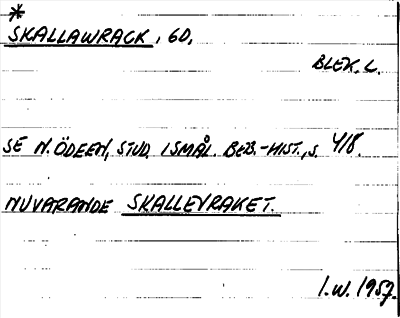 *
SKALLAWRACK, GD,
BLEK. L.
SE N. ÖDEEN, STUD. I SMÅL. BEB.-HIST., S. 418.
NUVARANDE SKALLEVRAKET.
I. W. 1959.